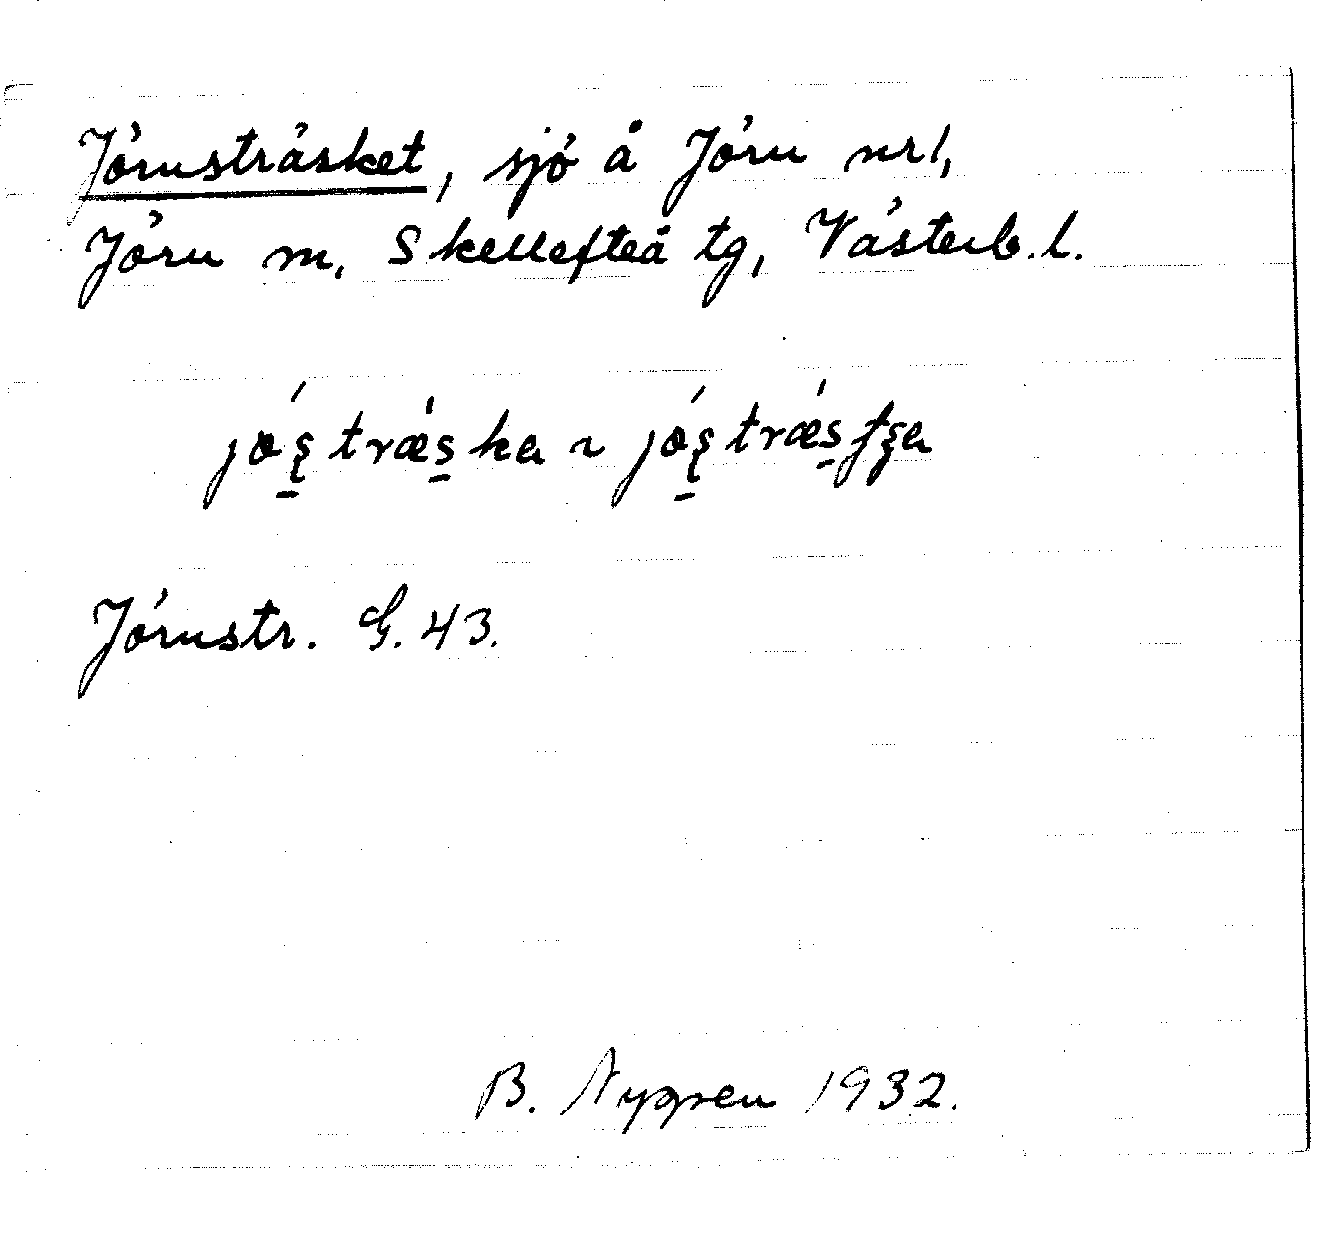 Jörnsträsket, sjö å Jörn nrl,
Jörn m, Skellefteå tg, Västerb.l.
jöʂ̱træs̱ka ~ jöʂ̱træs̱ʃʂa
Jörnstr. G. 43.
B. Nygren 1932.